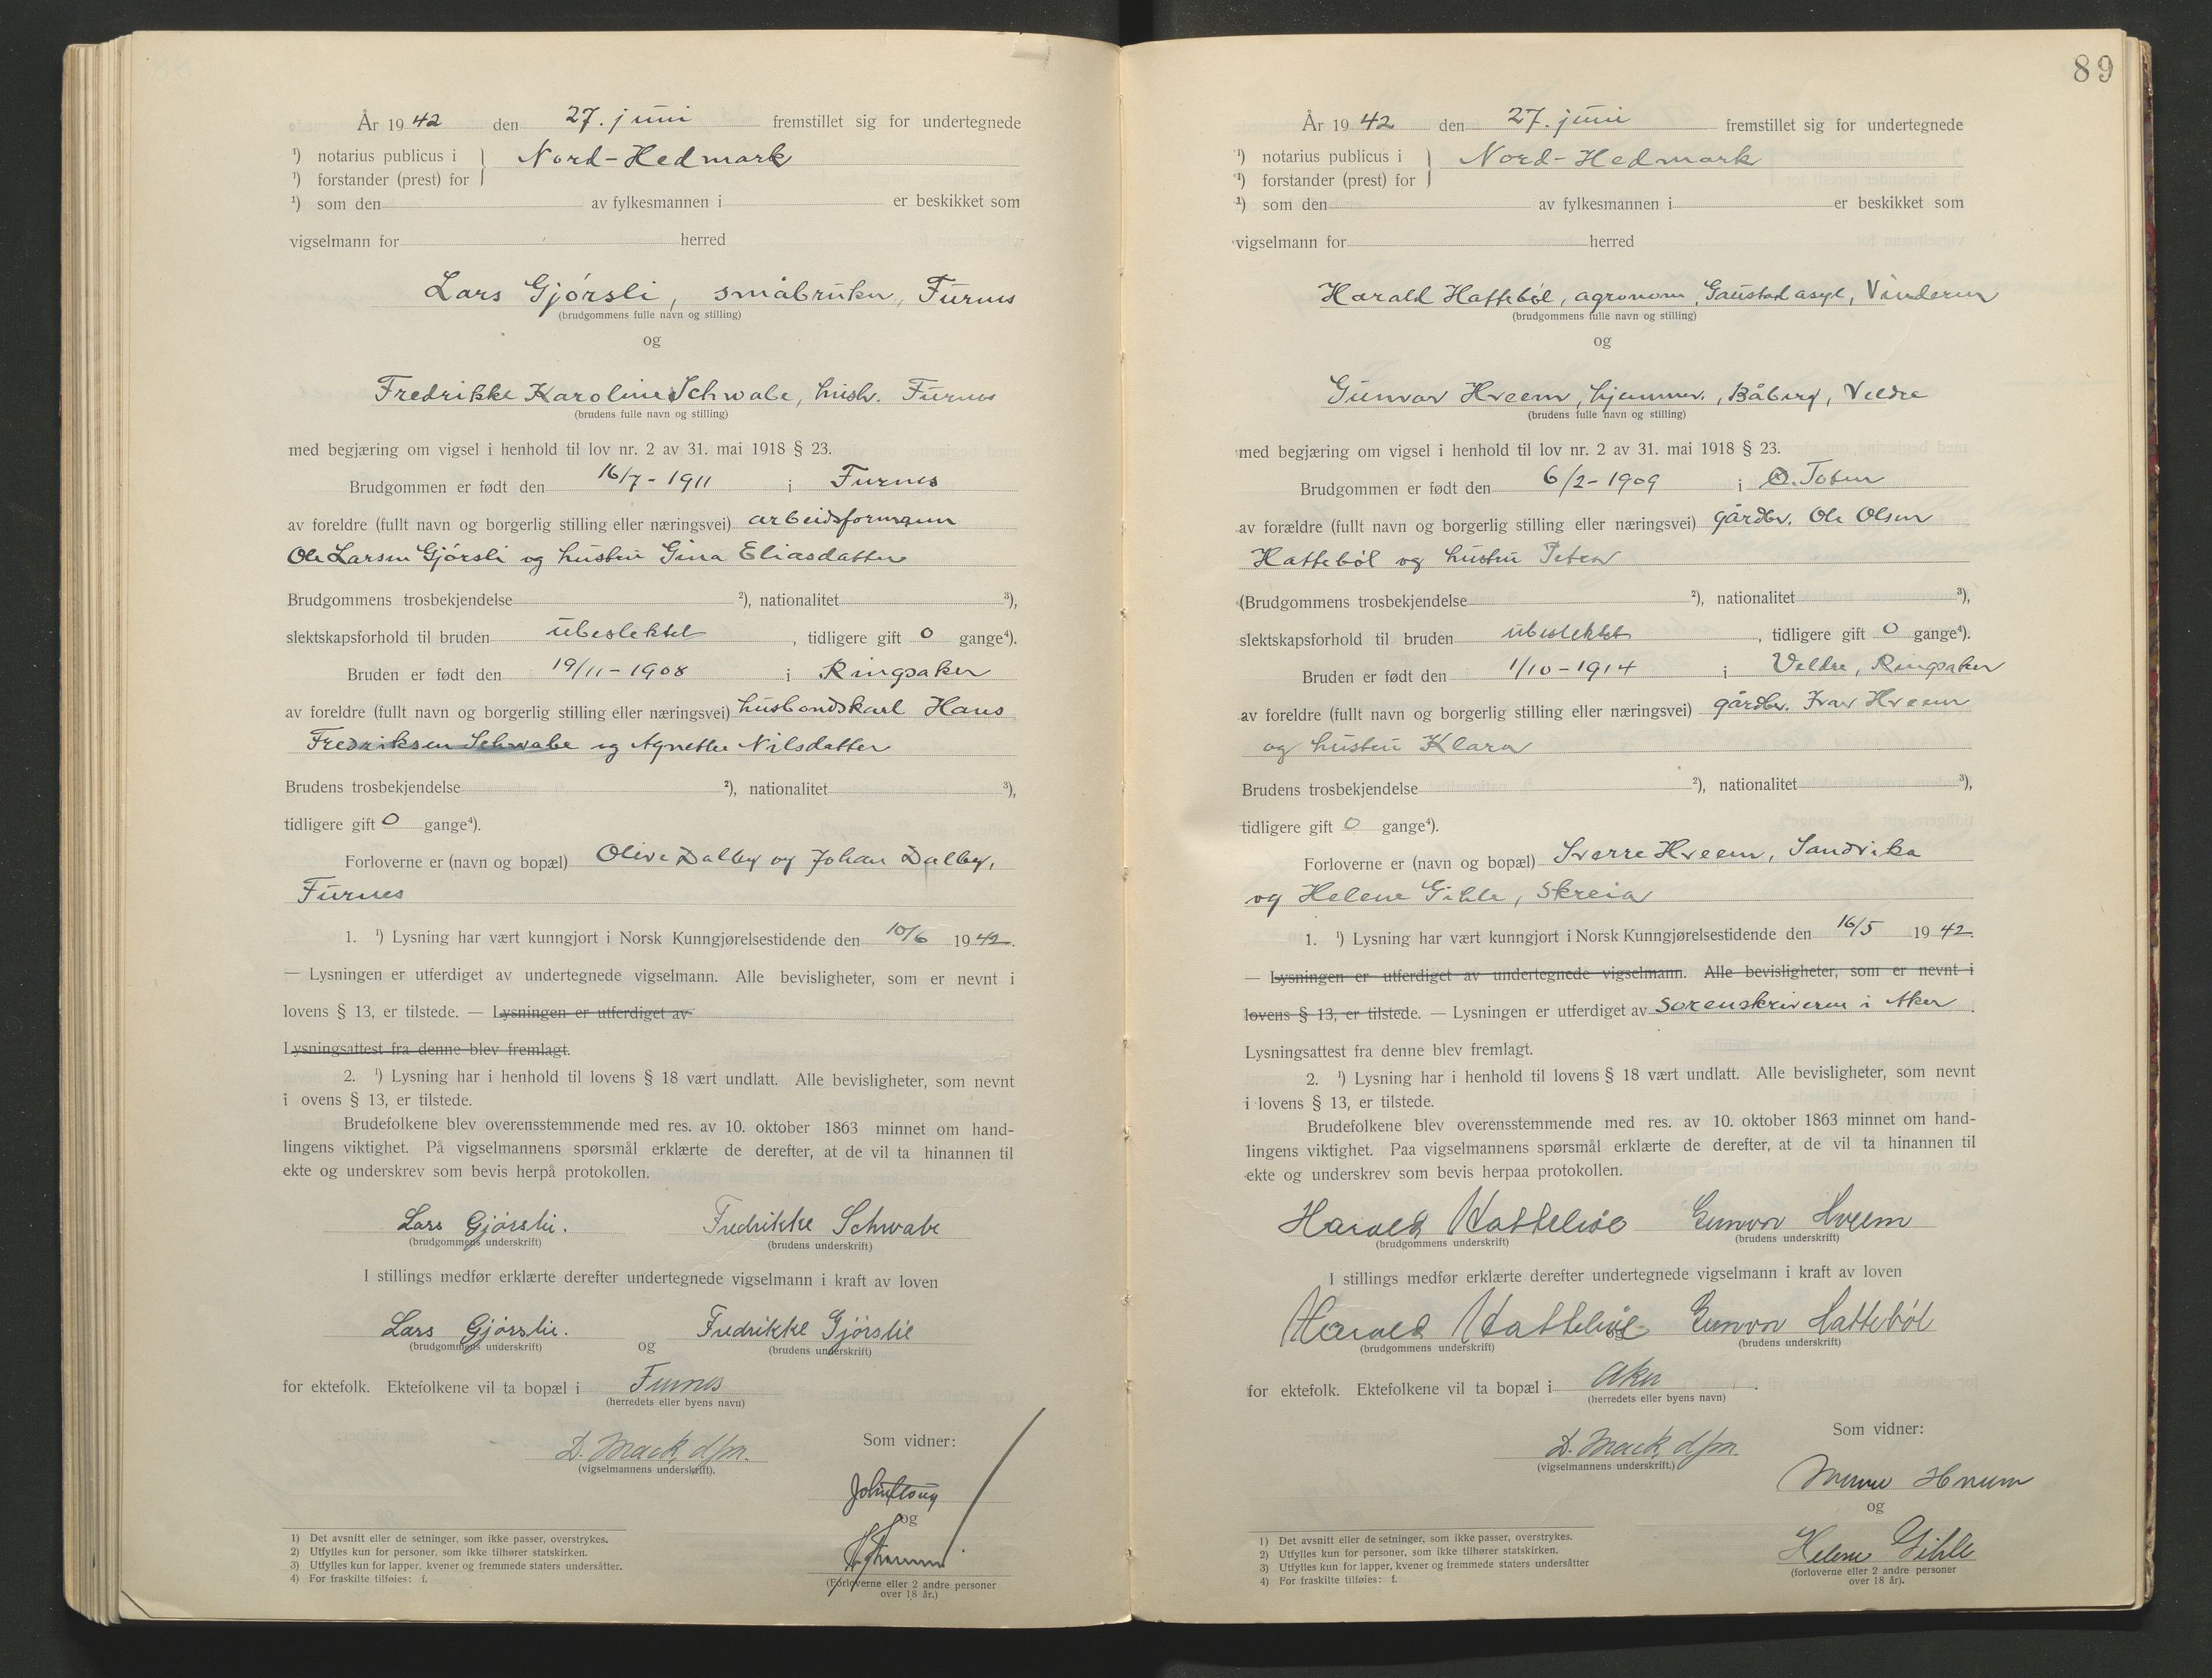 År 1942 den 27. juni fremstillet sig for undertegnede
¹) notarius publicus i } Nord-Hedmark
¹) forstander (prest) for
¹) som den av fylkesmannen i er beskikket som
vigselmann for herred
Lars Gjörsli, småbruker, Furnes
(brudgommens fulle navn og stilling)
og
Fredrikke Karoline Schwabe, hush. Furnes
(brudens fulle navn og stilling)
med begjæring om vigsel i henhold til lov nr. 2 av 31. mai 1918 § 23.
Brudgommen er født den 16/7 - 1911 i Furnes
av foreldre (fullt navn og borgerlig stilling eller næringsvei) arbeidsformann
Ole Larsen Gjörsli og hustru Gina Eliasdatter
Brudgommens trosbekjendelse ²), nationalitet ³),
slektskapsforhold til bruden ubeslektet, tidligere gift 0 gange⁴).
Bruden er født den 19/11 - 1908 i Ringsaker
av foreldre (fullt navn og borgerlig stilling eller næringsvei) husbondskarl Hans
Fredriksen Schwabe og Agnethe Nilsdatter
Brudens trosbekjendelse ²), nationalitet ³),
tidligere gift 0 gange⁴).
Forloverne er (navn og bopæl) Olive Dalby og Johan Dalby,
Furnes
1. ¹) Lysning har vært kunngjort i Norsk Kunngjørelsestidende den 10/6 1942.
— Lysningen er utferdiget av undertegnede vigselmann. Alle bevisligheter, som er nevnt i
lovens § 13, er tilstede. — Lysningen er utferdiget av
Lysningsattest fra denne blev fremlagt.
2. ¹) Lysning har i henhold til lovens § 18 vært undlatt. Alle bevisligheter, som nevnt
i ovens § 13, er tilstede.
Brudefolkene blev overensstemmende med res. av 10. oktober 1863 minnet om hand-
lingens viktighet. På vigselmannens spørsmål erklærte de derefter, at de vil ta hinannen til
ekte og underskrev som bevis herpå protokollen.
Lars Gjörslie. Fredrikke Schwabe
(brudgommens underskrift) (brudens underskrift)
I stillings medfør erklærte derefter undertegnede vigselmann i kraft av loven
Lars Gjörslie. og Fredrikke Gjörslie
(brudgommens underskrift) (brudens underskrift)
for ektefolk. Ektefolkene vil ta bopæl i Furnes
(herredets eller byens navn)
D. Mack, dfm.
(vigselmannens underskrift).
Som vidner:
og
(Forloverne eller 2 andre personer
over 18 år.)
1) Det avsnitt eller de setninger, som ikke passer, overstrykes.
2) Utfylles kun for personer, som ikke tilhører statskirken.
3) Utfylles kun for lapper, kvener og fremmede staters undersåtter.
4) For fraskilte tilføies: f.
89
År 1942 den 27. juni fremstillet sig for undertegnede
¹) notarius publicus i } Nord-Hedmark
¹) forstander (prest) for
¹) som den av fylkesmannen i er beskikket som
vigselmann for herred
Harald Hatteböl, agronom, Gaustad asyl, Vinderen
(brudgommens fulle navn og stilling)
og
Gunvor Hveem, hjemmev., Båberg, Veldre
(brudens fulle navn og stilling)
med begjæring om vigsel i henhold til lov nr. 2 av 31. mai 1918 § 23.
Brudgommen er født den 6/2 - 1909 i Ö. Toten
av forældre (fullt navn og borgerlig stilling eller næringsvei) gårdbr. Ole Olsen
Hatteböl og hustru Petra
(Brudgommens trosbekjendelse ²), nationalitet ³),
slektskapsforhold til bruden ubeslektet, tidligere gift 0 gange⁴).
Bruden er født den 1/10 - 1914 i Veldre, Ringsaker
av foreldre (fullt navn og borgerlig stilling eller næringsvei) gårdbr. Ivar Hveem
og hustru Klara
Brudens trosbekjendelse ²), nationalitet ³),
tidligere gift 0 gange⁴).
Forloverne er (navn og bopæl) Sverre Hveem, Sandvika
og Helene Gihle, Skreia
1. ¹) Lysning har vært kunngjort i Norsk Kunngjørelsestidende den 16/5 1942.
— Lysningen er utferdiget av undertegnede vigselmann. Alle bevisligheter, som er nevnt i
lovens § 13, er tilstede. — Lysningen er utferdiget av sorenskriveren i Aker.
Lysningsattest fra denne blev fremlagt.
2. ¹) Lysning har i henhold til lovens § 18 vært undlatt. Alle bevisligheter, som nevnt
i lovens § 13, er tilstede.
Brudefolkene blev overensstemmende med res. av 10. oktober 1863 minnet om hand-
lingens viktighet. Paa vigselmannens spørsmål erklærte de derefter, at de vil ta hinannen til
ekte og underskrev som bevis herpaa protokollen.
Harald Hatteböl Gunvor Hveem
(brudgommens underskrift) (brudens underskrift)
I stillings medfør erklærte derefter undertegnede vigselmann i kraft av loven
Harald Hatteböl og Gunvor Hatteböl
(brudgommens underskrift) (brudens underskrift)
for ektefolk. Ektefolkene vil ta bopæl i Aker.
(herredets eller byens navn)
D. Mack, dfm.
(vigselmannens underskrift.)
Som vidner:
Sverre Hveem
og
Helene Gihle
(forloverne eller 2 andre personer
over 18 år).
1) Det avsnitt eller de setninger, som ikke passer, overstrykes.
2) Utfylles kun for personer, som ikke tilhører statskirken.
3) Utfylles kun for lapper, kvener og fremmede staters undersåtter
4) For fraskilte tilføies: f.